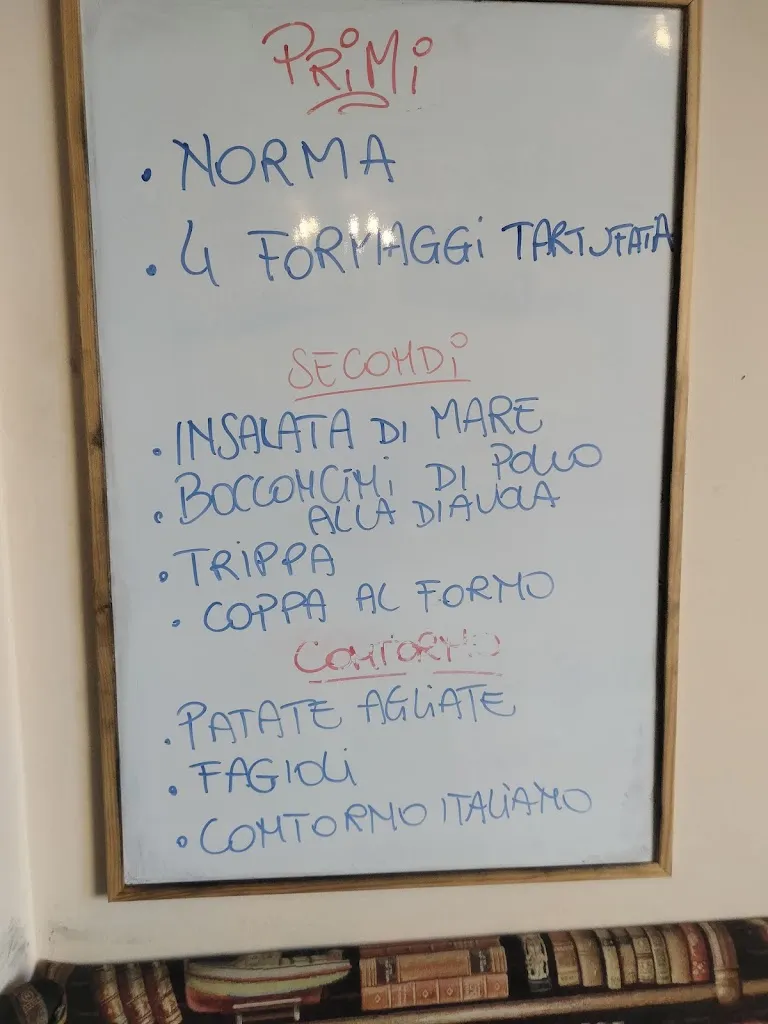 PRiMi
• NORMA
• 4 FORMAGGi TARTUFATA
SECONDi
• INSALATA DI MARE
• BOCCONCINi DI POLLO
ALLA DIAVOLA
• TRiPPA
• COPPA AL FORNO
CONTORNO
• PATATE AGLiATE
• FAGIOLi
• CONTORNO ITALiANO